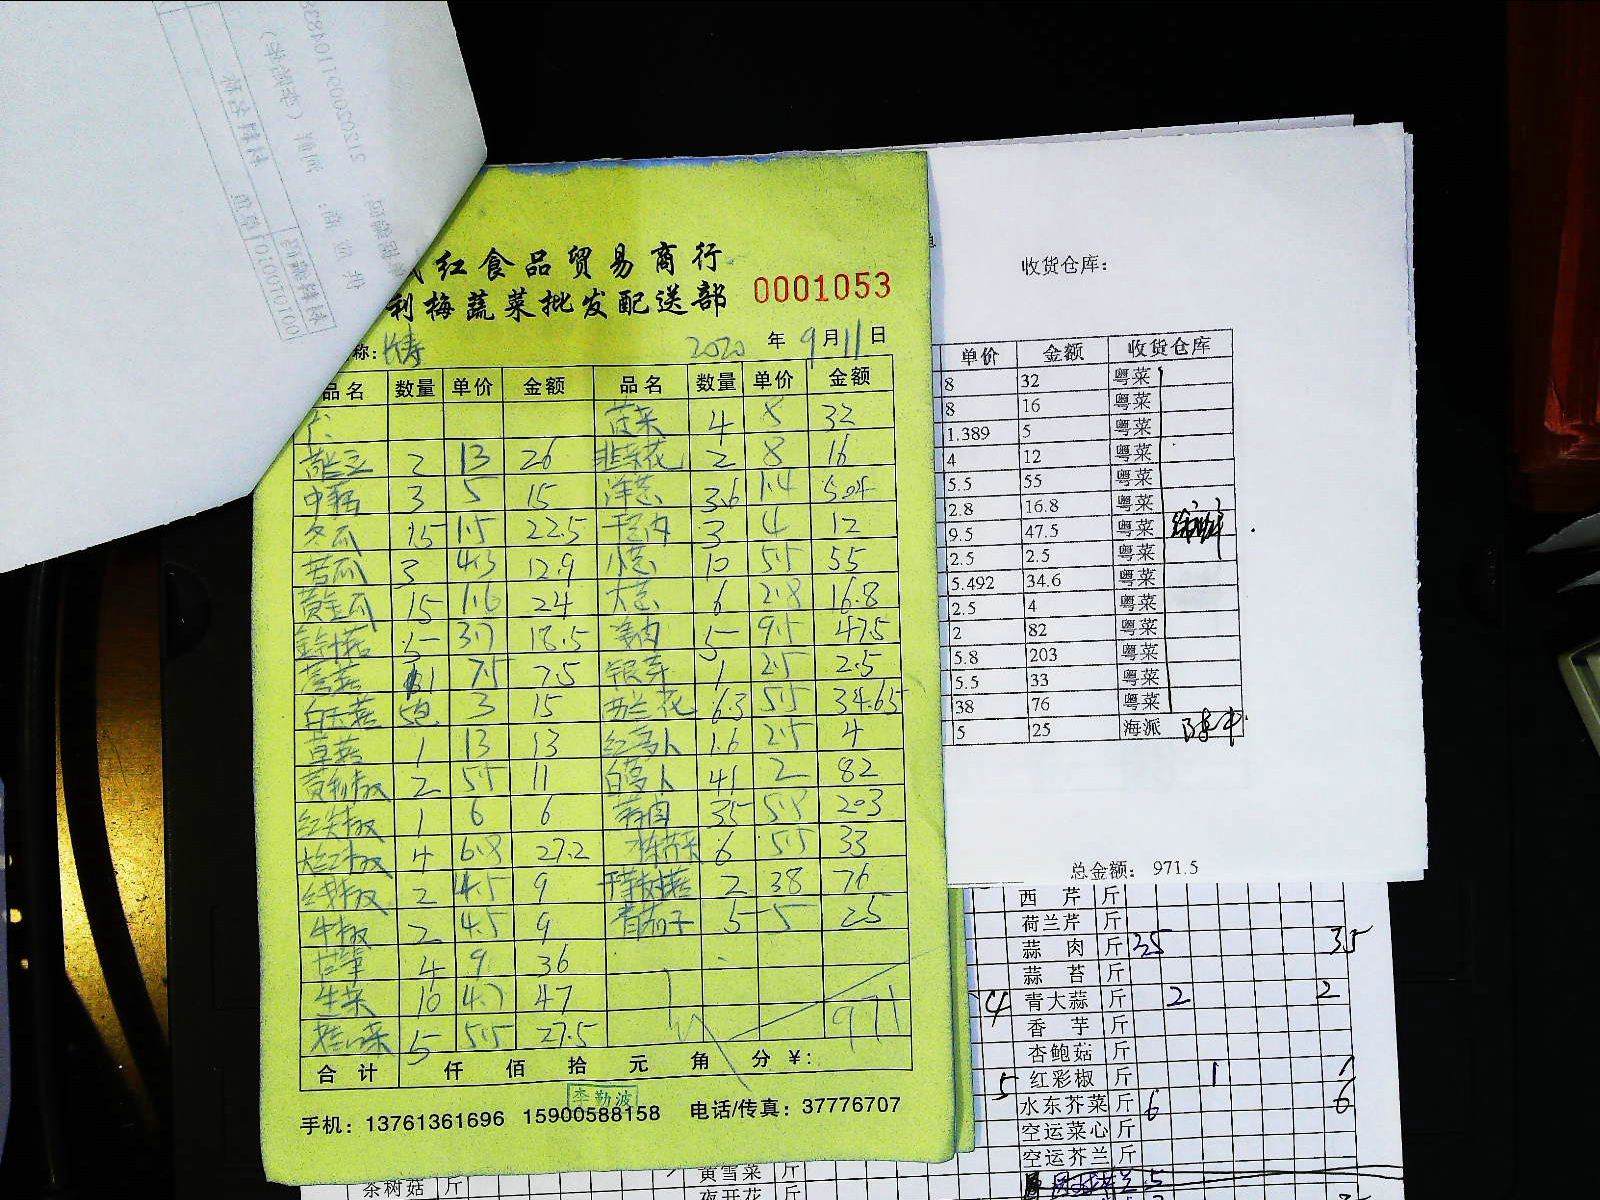 红食品贸易商行
利梅蔬菜批发配送部
0001053
称：长寿 2020 年 9 月 11 日
品名 数量 单价 金额 品名 数量 单价 金额
4 8 32
2 13 26 韭菜花 2 8 16
中 3 5 15 洋葱 3.6 1.4 5.04
冬瓜 15 1.5 22.5 3 4 12
苦瓜 3 4.3 12.9 小葱 10 5.5 55
黄金瓜 15 1.6 24 大葱 6 2.8 16.8
金针菇 5 3.7 18.5 姜肉 5 9.5 47.5
1 7.5 7.5 银芽 1 2.5 2.5
白玉菇 5包 3 15 西兰花 6.3 5.5 34.65
草菇 1 13 13 红萝卜 1.6 2.5 4
2 5.5 11 白萝卜 41 2 82
红尖椒 1 6 6 蒜肉 35 5.8 203
大红椒 4 6.8 27.2 水东芥菜 6 5.5 33
红线椒 2 4.5 9 干茶树菇 2 38 76
牛椒 2 4.5 9 青茄子 5 5 25
4 9 36
生菜 10 4.7 47
5 5.5 27.5 971
合计 仟 佰 拾 元 角 分 ¥：
李勤波
手机：13761361696 15900588158 电话/传真：37776707
收货仓库：
单价 金额 收货仓库
8 32 粤菜
8 16 粤菜
1.389 5 粤菜
4 12 粤菜
5.5 55 粤菜
2.8 16.8 粤菜
9.5 47.5 粤菜
2.5 2.5 粤菜
5.492 34.6 粤菜
2.5 4 粤菜
2 82 粤菜
5.8 203 粤菜
5.5 33 粤菜
38 76 粤菜
5 25 海派
总金额： 971.5
西芹 斤
荷兰芹 斤
蒜肉 斤 35 35
蒜苔 斤
4 青大蒜 斤 2 2
香芋 斤
杏鲍菇 斤
5 红彩椒 斤 1 1
水东芥菜 斤 6 6
空运菜心 斤
空运芥兰 斤
黄雪菜 斤
茶树菇 斤
夜开花 斤